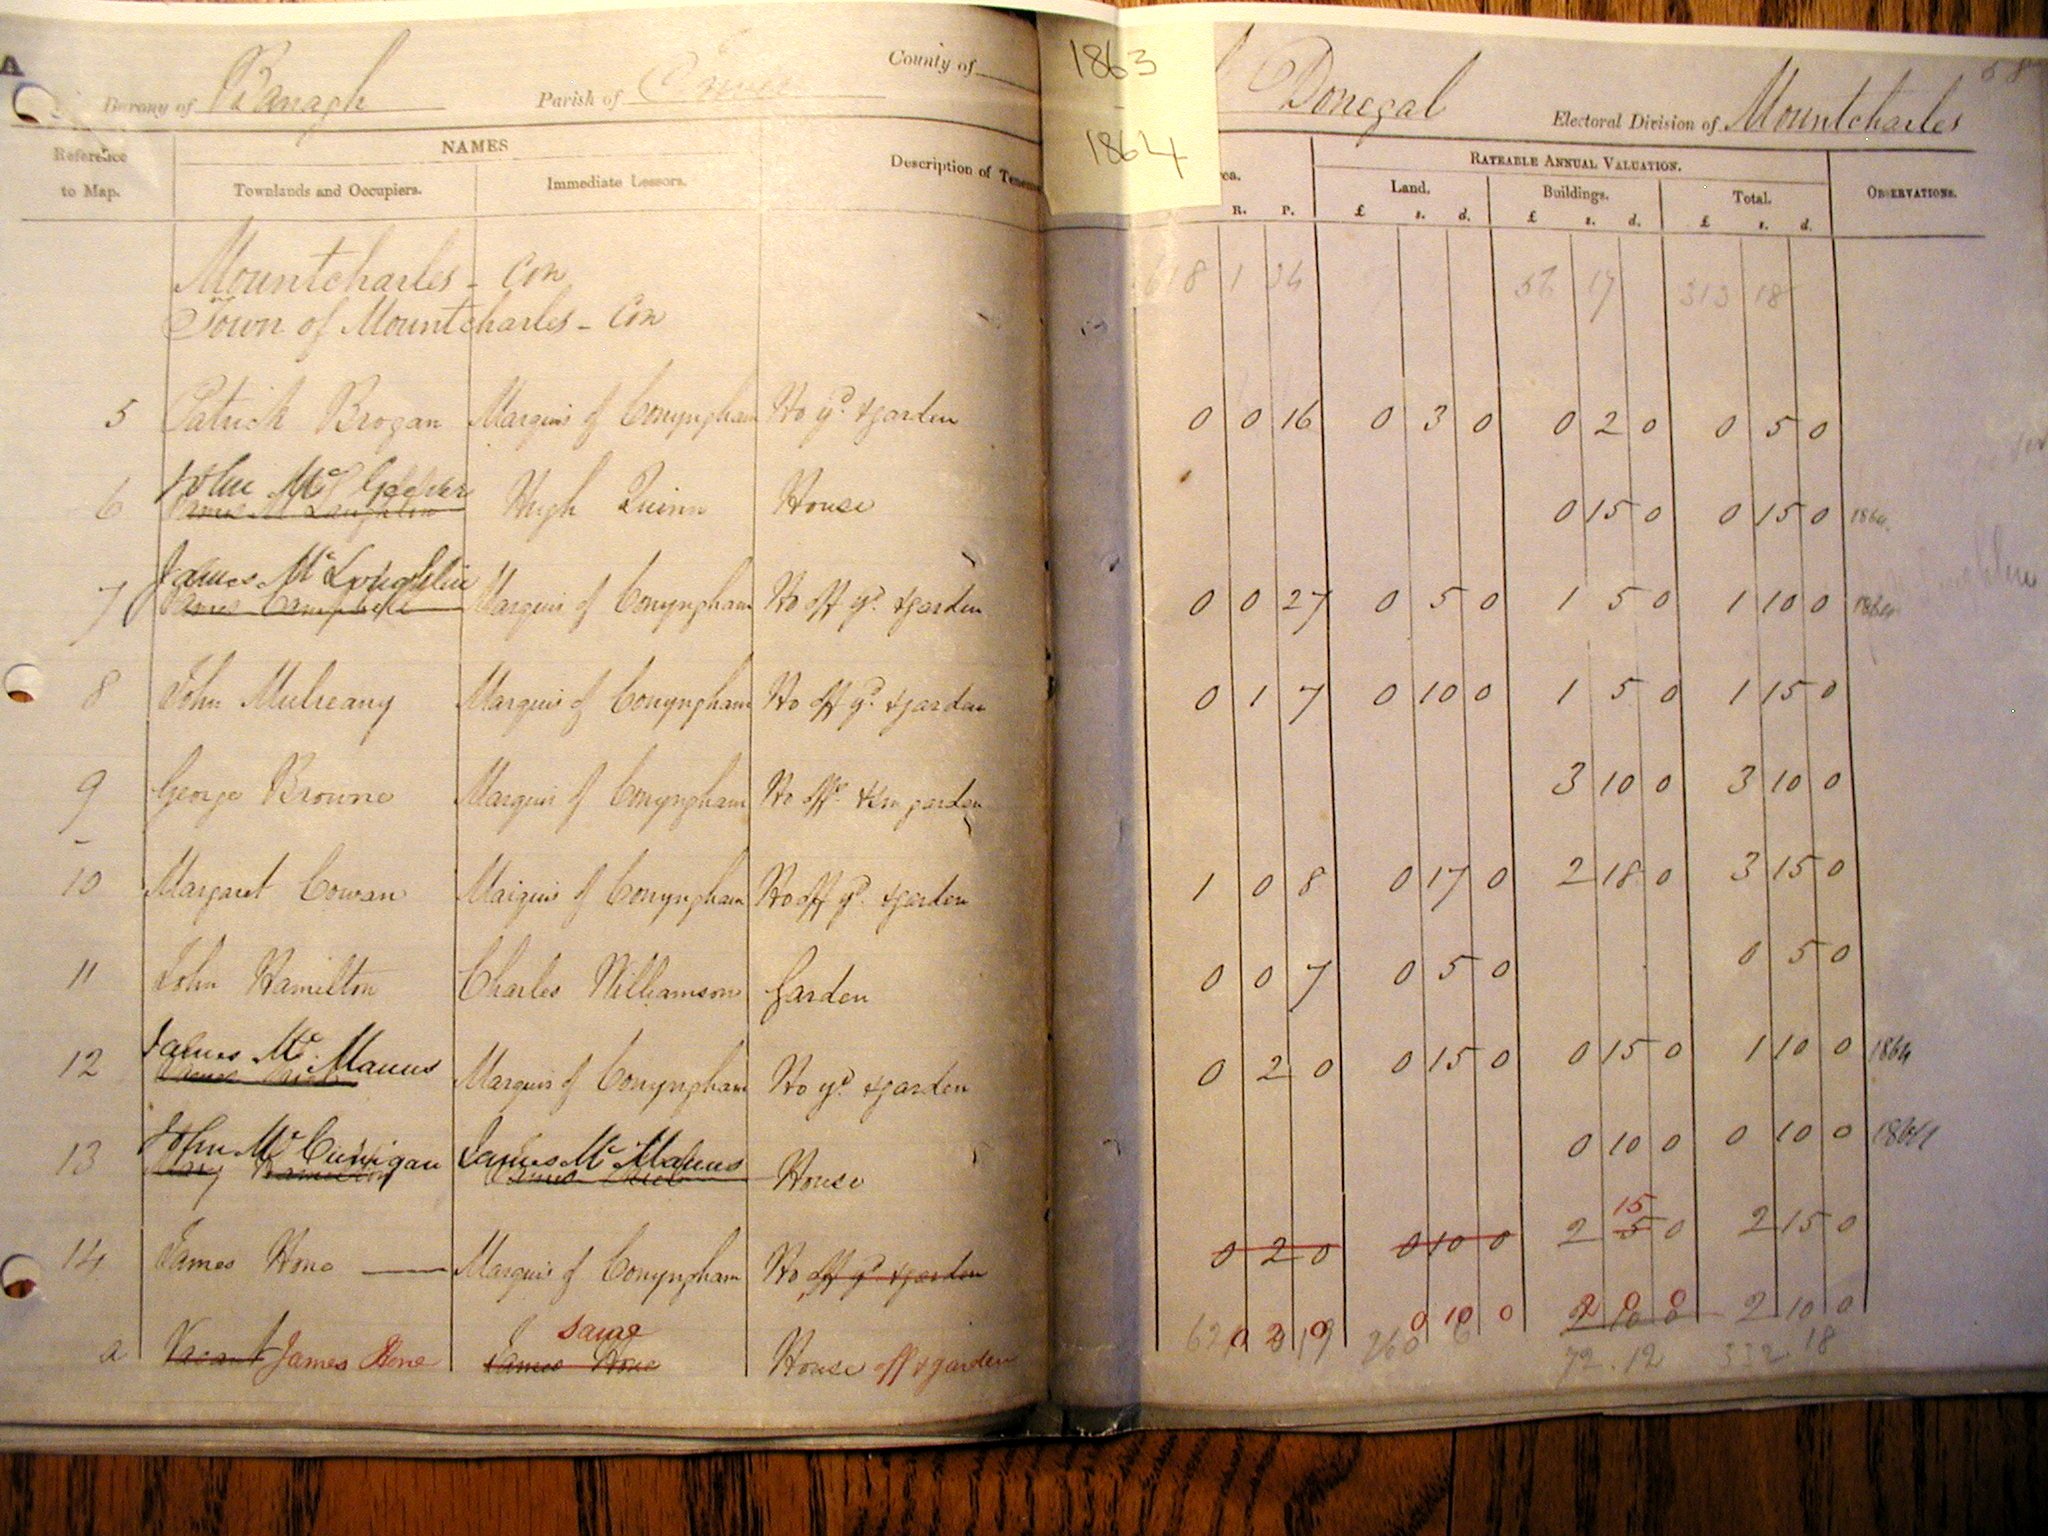 A
Barony of Banagh Parish of Inver County of
1863
1864
Donegal Electoral Division of Mountcharles 58
Reference to Map. NAMES Description of Teneme
Townlands and Occupiers. Immediate Lessors.
rea. RATEABLE ANNUAL VALUATION. OBSERVATIONS.
Land. Buildings. Total.
R. P. £ s. d. £ s. d. £ s. d.
Mountcharles - Con 618 1 34 56 17 313 18
Town of Mountcharles - Con
5 Patrick Brogan Marquis of Conyngham Ho yd. & garden 0 0 16 0 3 0 0 2 0 0 5 0
John Mc
6 James McLaughlin Hugh Quinn House 0 15 0 0 15 0 1864
James Mc Loughlin
7 James Campbell Marquis of Conyngham Ho off yd. & garden 0 0 27 0 5 0 1 5 0 1 10 0 1864
8 John Mulreany Marquis of Conyngham Ho off yd. & garden 0 1 7 0 10 0 1 5 0 1 15 0
9 George Browne Marquis of Conyngham Ho offs. & sm garden 3 10 0 3 10 0
10 Margaret Cowan Marquis of Conyngham Ho off yd. & garden 1 0 8 0 17 0 2 18 0 3 15 0
11 John Hamilton Charles Williamson Garden 0 0 7 0 5 0 0 5 0
James Mc. Manus
12 James Marquis of Conyngham Ho yd. & garden 0 2 0 0 15 0 0 15 0 1 10 0 1864
John Mc Cunigan James Mc Manus
13 Mary Hamilton James House 0 10 0 0 10 0 1864
15
14 James Hone Marquis of Conyngham Ho off yd. & garden 0 2 0 0 10 0 2 5 0 2 15 0
same 2 0 0
a Vacant James Hone James Hone House off & garden 0 2 0 0 10 0 2 10 0 2 10 0
72 . 12 332 . 18